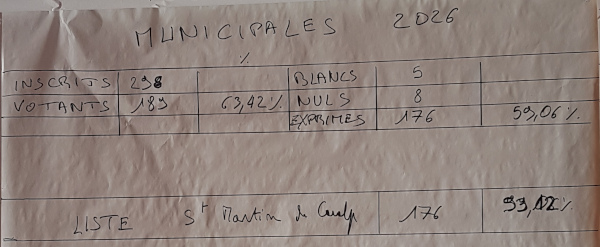 MUNICIPALES 2026
%
INSCRITS 298 BLANCS 5
VOTANTS 189 63,42% NULS 8
EXPRIMES 176 59,06%
LISTE St Martin de 176 93,12%